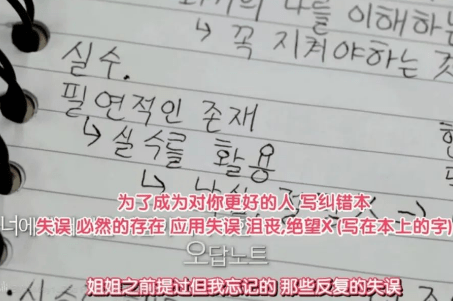 이해하는
↳ 꼭 지켜야하는 것
실수.
필연적인 존재
↳ 실수를 활용
为了成为对你更好的人 写纠错本
너에
失误 必然的存在 应用失误 沮丧,绝望X (写在本上的字)
오답노트
姐姐之前提过但我忘记的 那些反复的失误